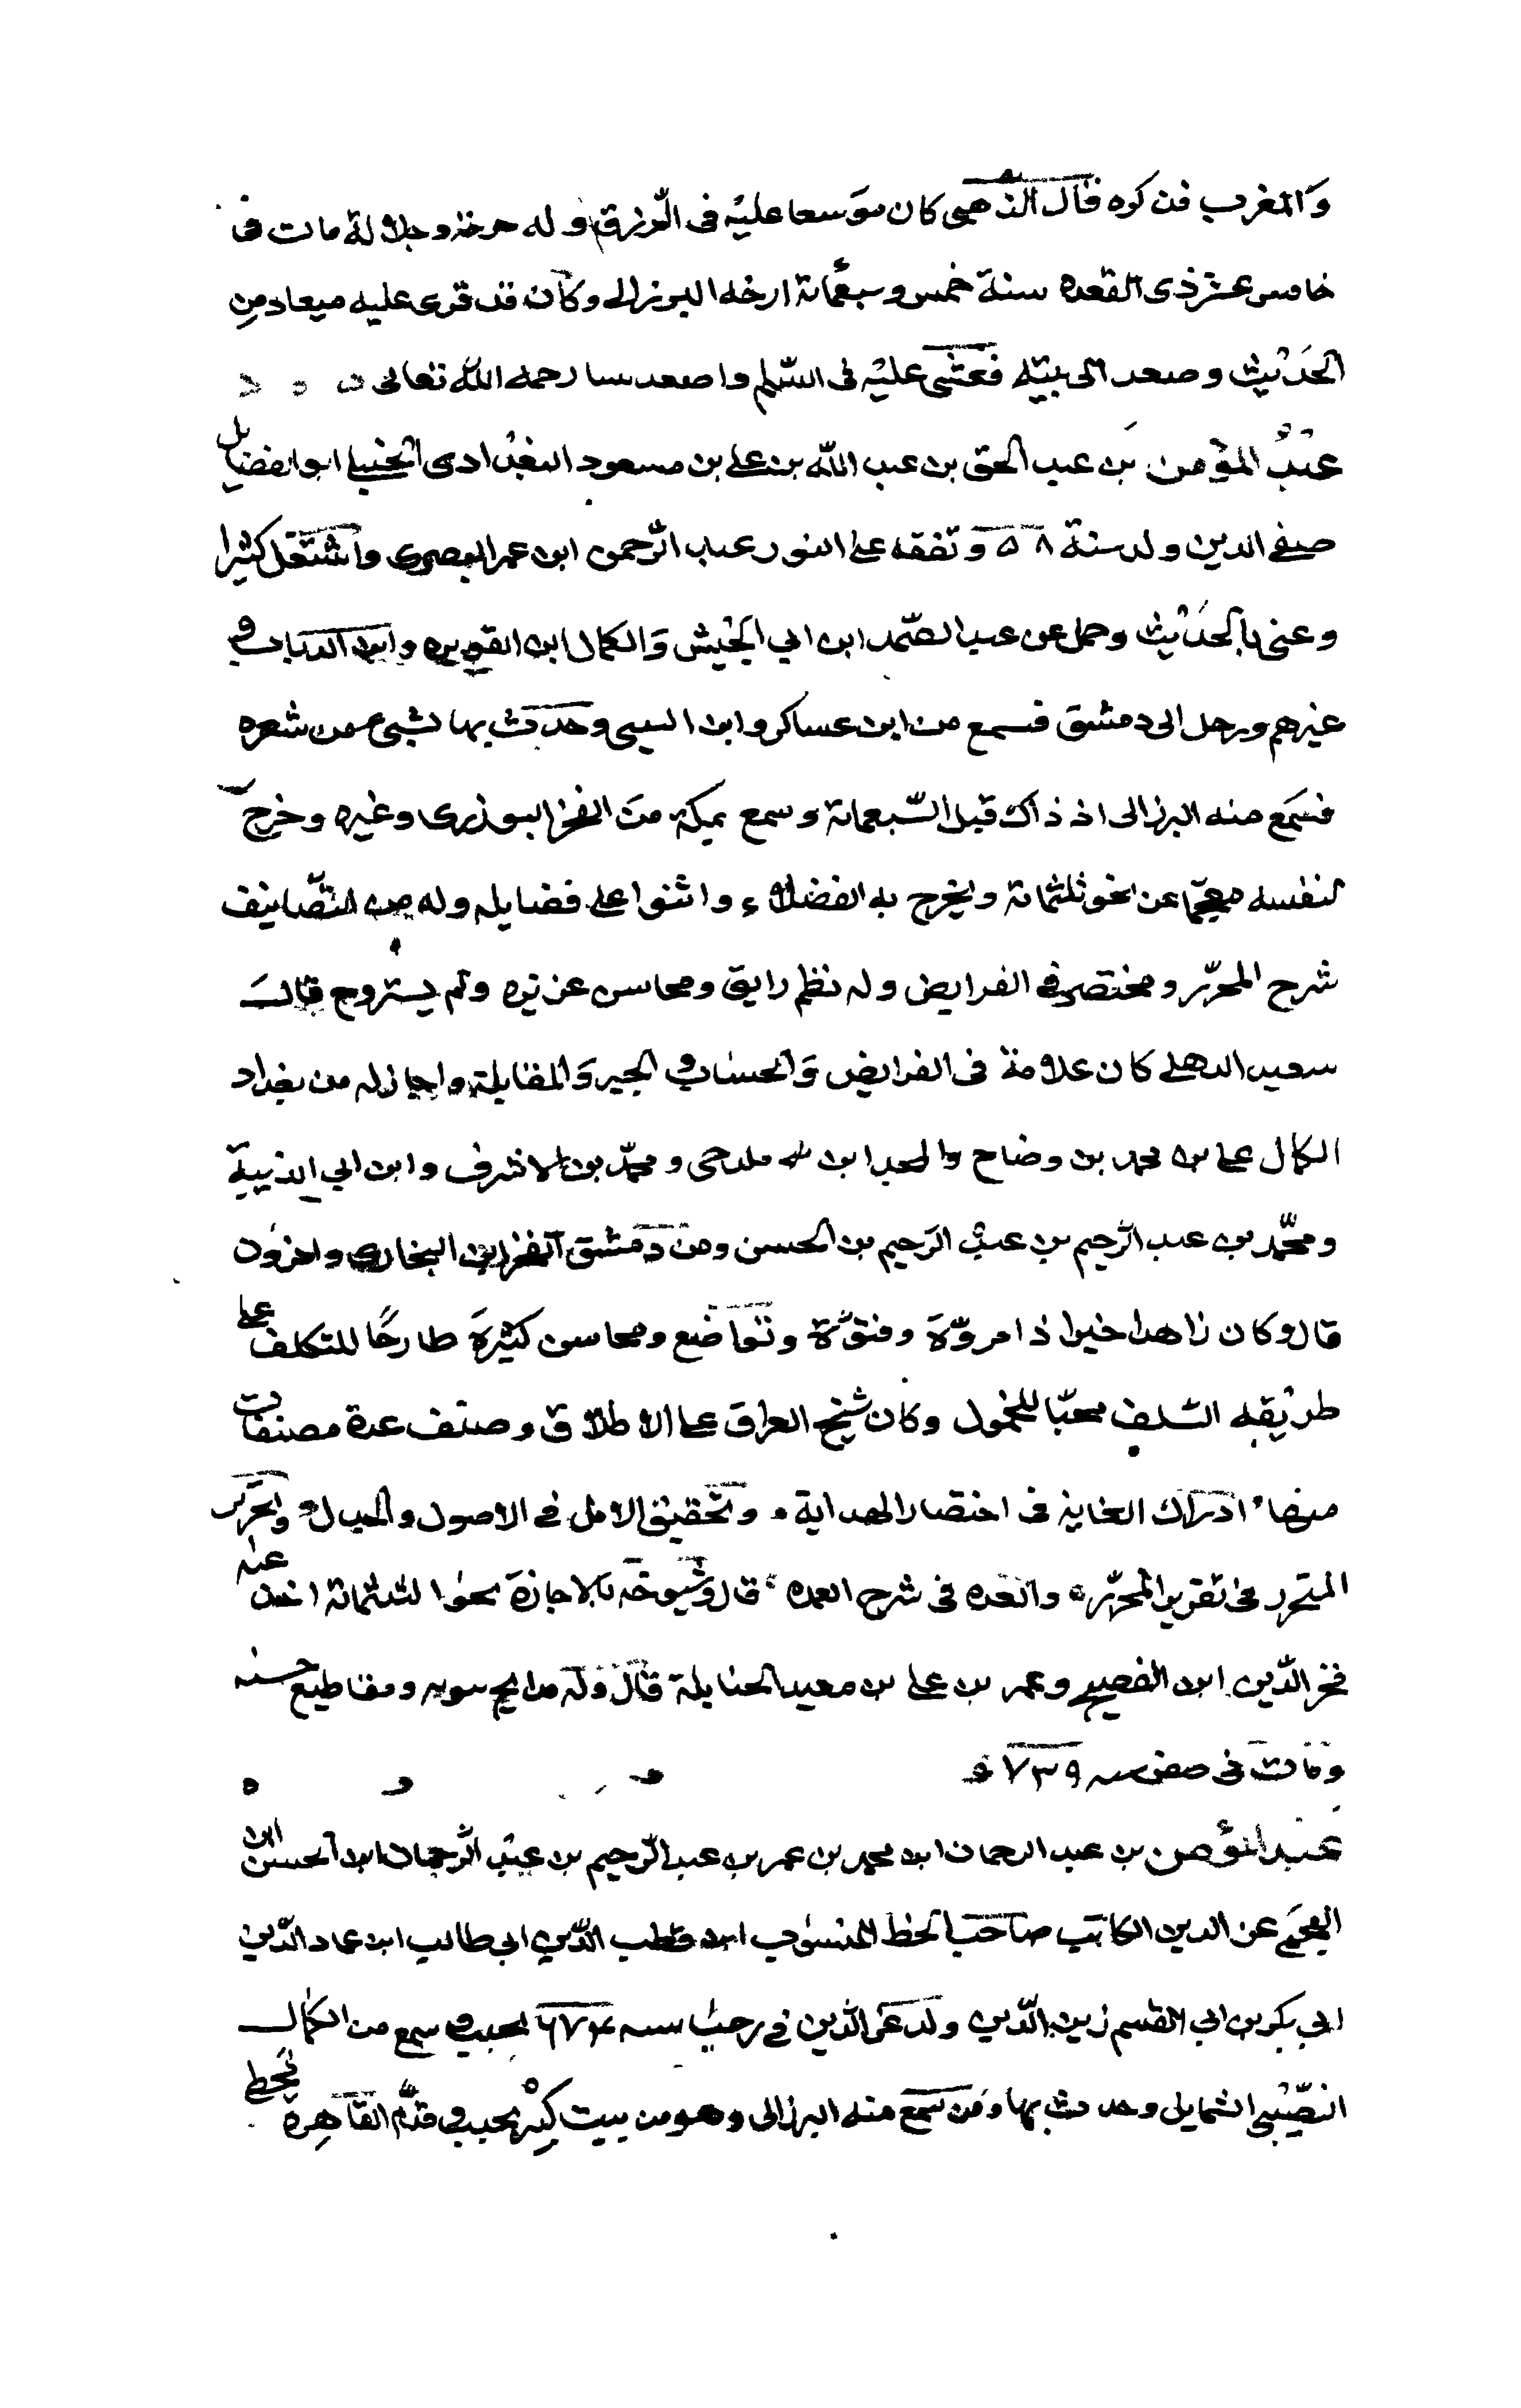 والمغرب فذكره قال الذهبى كان موسعا عليه فى الرزق وله حرمة وجلالة مات فى
خامس عشر ذى القعده سنة خمس وسبعمائة ارخه البرزالى وكان قد قرى عليه ميعاد من
الحديث وصعد الى بيته فغشى عليه فى السلم واصعد رحمه الله تعالى
عبد المؤمن بن عبد الحق بن عبد الله بن على بن مسعود البغدادى الحنبلى ابو الفضايل
صفى الدين ولد سنة ٥٨ وتفقه على النور عبد الرحمن ابن عمر البصرى واشتغل كثيرا
وعنى بالحديث وحمل عن عبد الصمد ابن ابي الجيش والكمال ابن القويره وابن الدباب و
غيرهم ورحل الى دمشق فسمع من ابن عساكر وابن وحدث بها بشىء من شعره
فسمع منه البرزالى اذ ذاك قبل السبعماية وسمع بمكة من الفخر البوزرى وغيره وخرج
لنفسه معجما عن نحو ثلثماية وتخرج به الفضلاء واثنوا على فضايله وله من التصانيف
شرح المحرر ومختصر فى الفرايض وله نظم رايق ومحاسن عزيزه ولم يتزوج قال
سعيد الدهلى كان علامة فى الفرايض والحساب و الجبر والمقابلة واجاز له من بغداد
الكمال على بن محمد بن وضاح ومحمد بن الاشرف وابن ابي الدنية
ومحمد بن عبد الرحيم بن عبد الرحيم بن الحسن ومن دمشق الفخر ابن البخارى واخرون
قال وكان زاهدا خيرا ذا مروة وفتوة وتواضع ومحاسن كثيرة طارحا للتكلف على
طريقه السلف محبا للخمول وكان شيخ العراق على الاطلاق وصنف عدة مصنفات
منها ادراك الغاية فى اختصار الهداية وتحقيق الامل فى الاصول والجدل وتحرير
المتحرر فى تقرير المحرر والعده فى شرح العمده قال وشيوخه بالاجازة نحوا لثلثماية اخذ عنه
فخر الدين ابن الفصيح وعمر بن على بن معيد الحنابلة قال وله مدايح نبويه ومقاطيع حسنه
ومات فى صفر سنه ٧٣٩
عبد المؤمن بن عبد الرحمان ابن محمد بن عمر بن عبد الرحيم بن عبد الرحمان ابن الحسن ابن
العجمى عز الدين الكاتب صاحب الخط المنسوب ابن قطب الدين ابى طالب ابن عماد الدين
ابي بكر بن ابي القسم زين الدين ولد عز الدين فى رجب سنه ٦٧٤ بحلب سمع من الكمال
النصيبى الشمايل وحدث بها وممن سمع منه البرزالى وهو من بيت كبير بحلب قدم القاهرة بخط